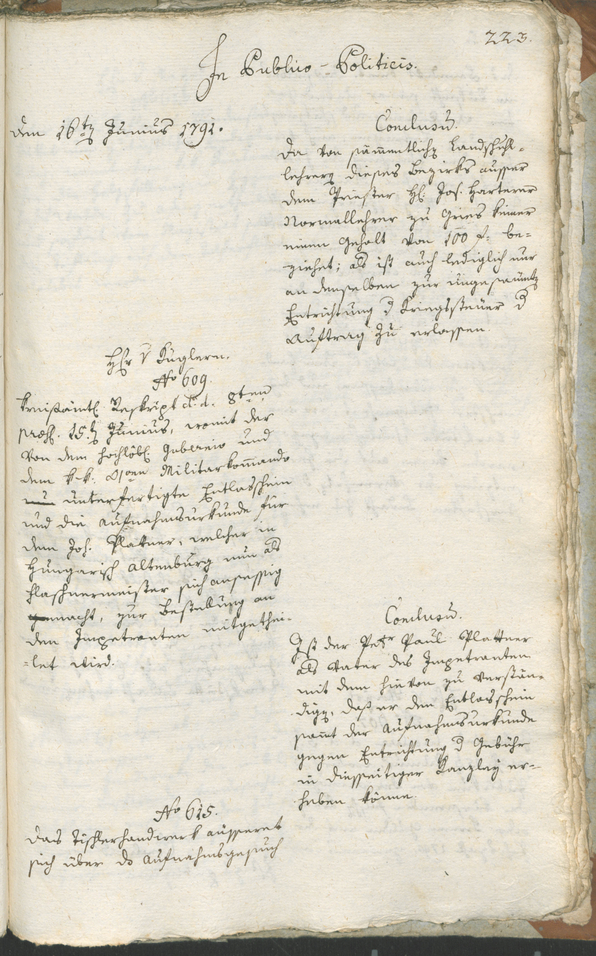 223.
In Publico-Politicis.
den 16ten Junius 1791.
Conclusum.
Da von sämmentlichen Landschul-
lehrern dieses Bezirks ausser
dem Priester H. Jos. Harterer
Normallehrer zu Gries keiner
einen Gehalt von 100 f. be-
ziehet; als ist auch lediglich nur
an demselben zur ungesäumten
Entrichtung d Kriegssteuer d
Auftrag zu erlassen.
Hr v Küglern.
No 609.
Kreisämtl. Reskript d.d. 8ten
præs. 15ten Junius, womit der
von dem hochlöbl. Gubernio und
dem k.k. Militarkommando
unterfertigte Entlasschein
und die Aufnahmsurkunde für
dem Joh. Plattner, welcher in
Hungarisch Altenburg nun als
Flaschnermeister sich ansessig
gemacht, zur Bestellung an
den Impetranten mitgethei-
let wird.
Conclusum.
Ist der Petr Paul Plattner
als Vater des Impetranten
mit dem hievon zu verstän-
digen, daß er den Entlasschein
sammt der Aufnahmsurkunde
gegen Entrichtung d Gebühr
in diesseitiger Kanzley er-
heben könne.
No 615.
Das Tischlerhandwerk äusseret
sich über ds Aufnahmsgesuch